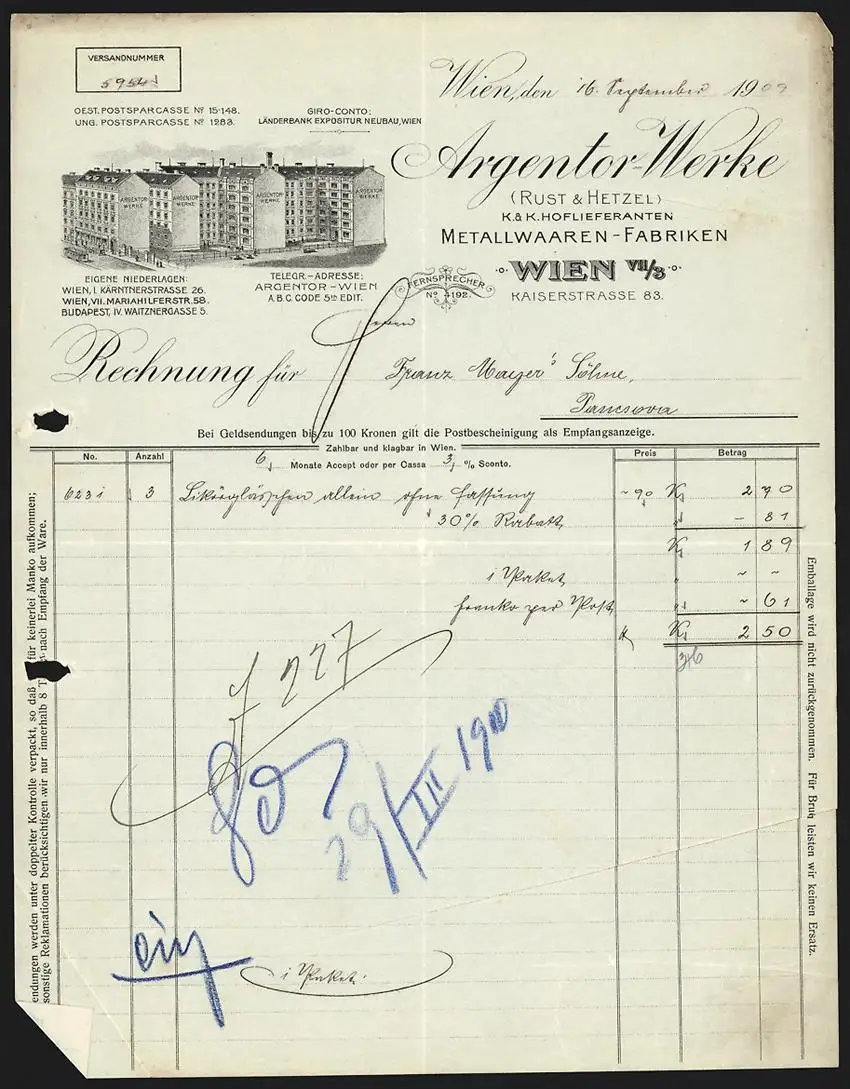 VERSANDNUMMER
5954
OEST. POSTSPARCASSE Nº 15·148.
UNG. POSTSPARCASSE Nº 1283.
GIRO-CONTO:
LÄNDERBANK EXPOSITUR NEUBAU, WIEN
Wien, den 16. September 1909
Argentor-Werke
(RUST & HETZEL)
K. & K. HOFLIEFERANTEN
METALLWAAREN-FABRIKEN
WIEN VII/3
KAISERSTRASSE 83.
FERNSPRECHER
Nº 4192.
ARGENTOR WERKE
ARGENTOR WERKE
ARGENTOR WERKE
ARGENTOR WERKE
EIGENE NIEDERLAGEN:
WIEN, I. KÄRNTNERSTRASSE 26.
WIEN, VII. MARIAHILFERSTR. 58.
BUDAPEST, IV. WAITZNERGASSE 5.
TELEGR.-ADRESSE:
ARGENTOR-WIEN
A.B.C. CODE 5th EDIT.
Herren
Rechnung für Franz Mayer's Söhne,
Pancsova
Bei Geldsendungen bis zu 100 Kronen gilt die Postbescheinigung als Empfangsanzeige.
Zahlbar und klagbar in Wien.
6 Monate Accept oder per Cassa 3 % Sconto.
No. Anzahl Preis Betrag
6231 3 Likörgläschen allein ohne Fassung ~90 K 2 70
30% Rabatt " – 81
K 1 89
1 Paket " ~ ~
franko per Post " ~ 61
K 2 50
36
227
29/III 1910
1 Paket.
endungen werden unter doppelter Kontrolle verpackt, so daß für keinerlei Manko aufkommen;
sonstige Reklamationen berücksichtigen wir nur innerhalb 8 T nach Empfang der Ware.
Emballage wird nicht zurückgenommen. Für Bruch leisten wir keinen Ersatz.